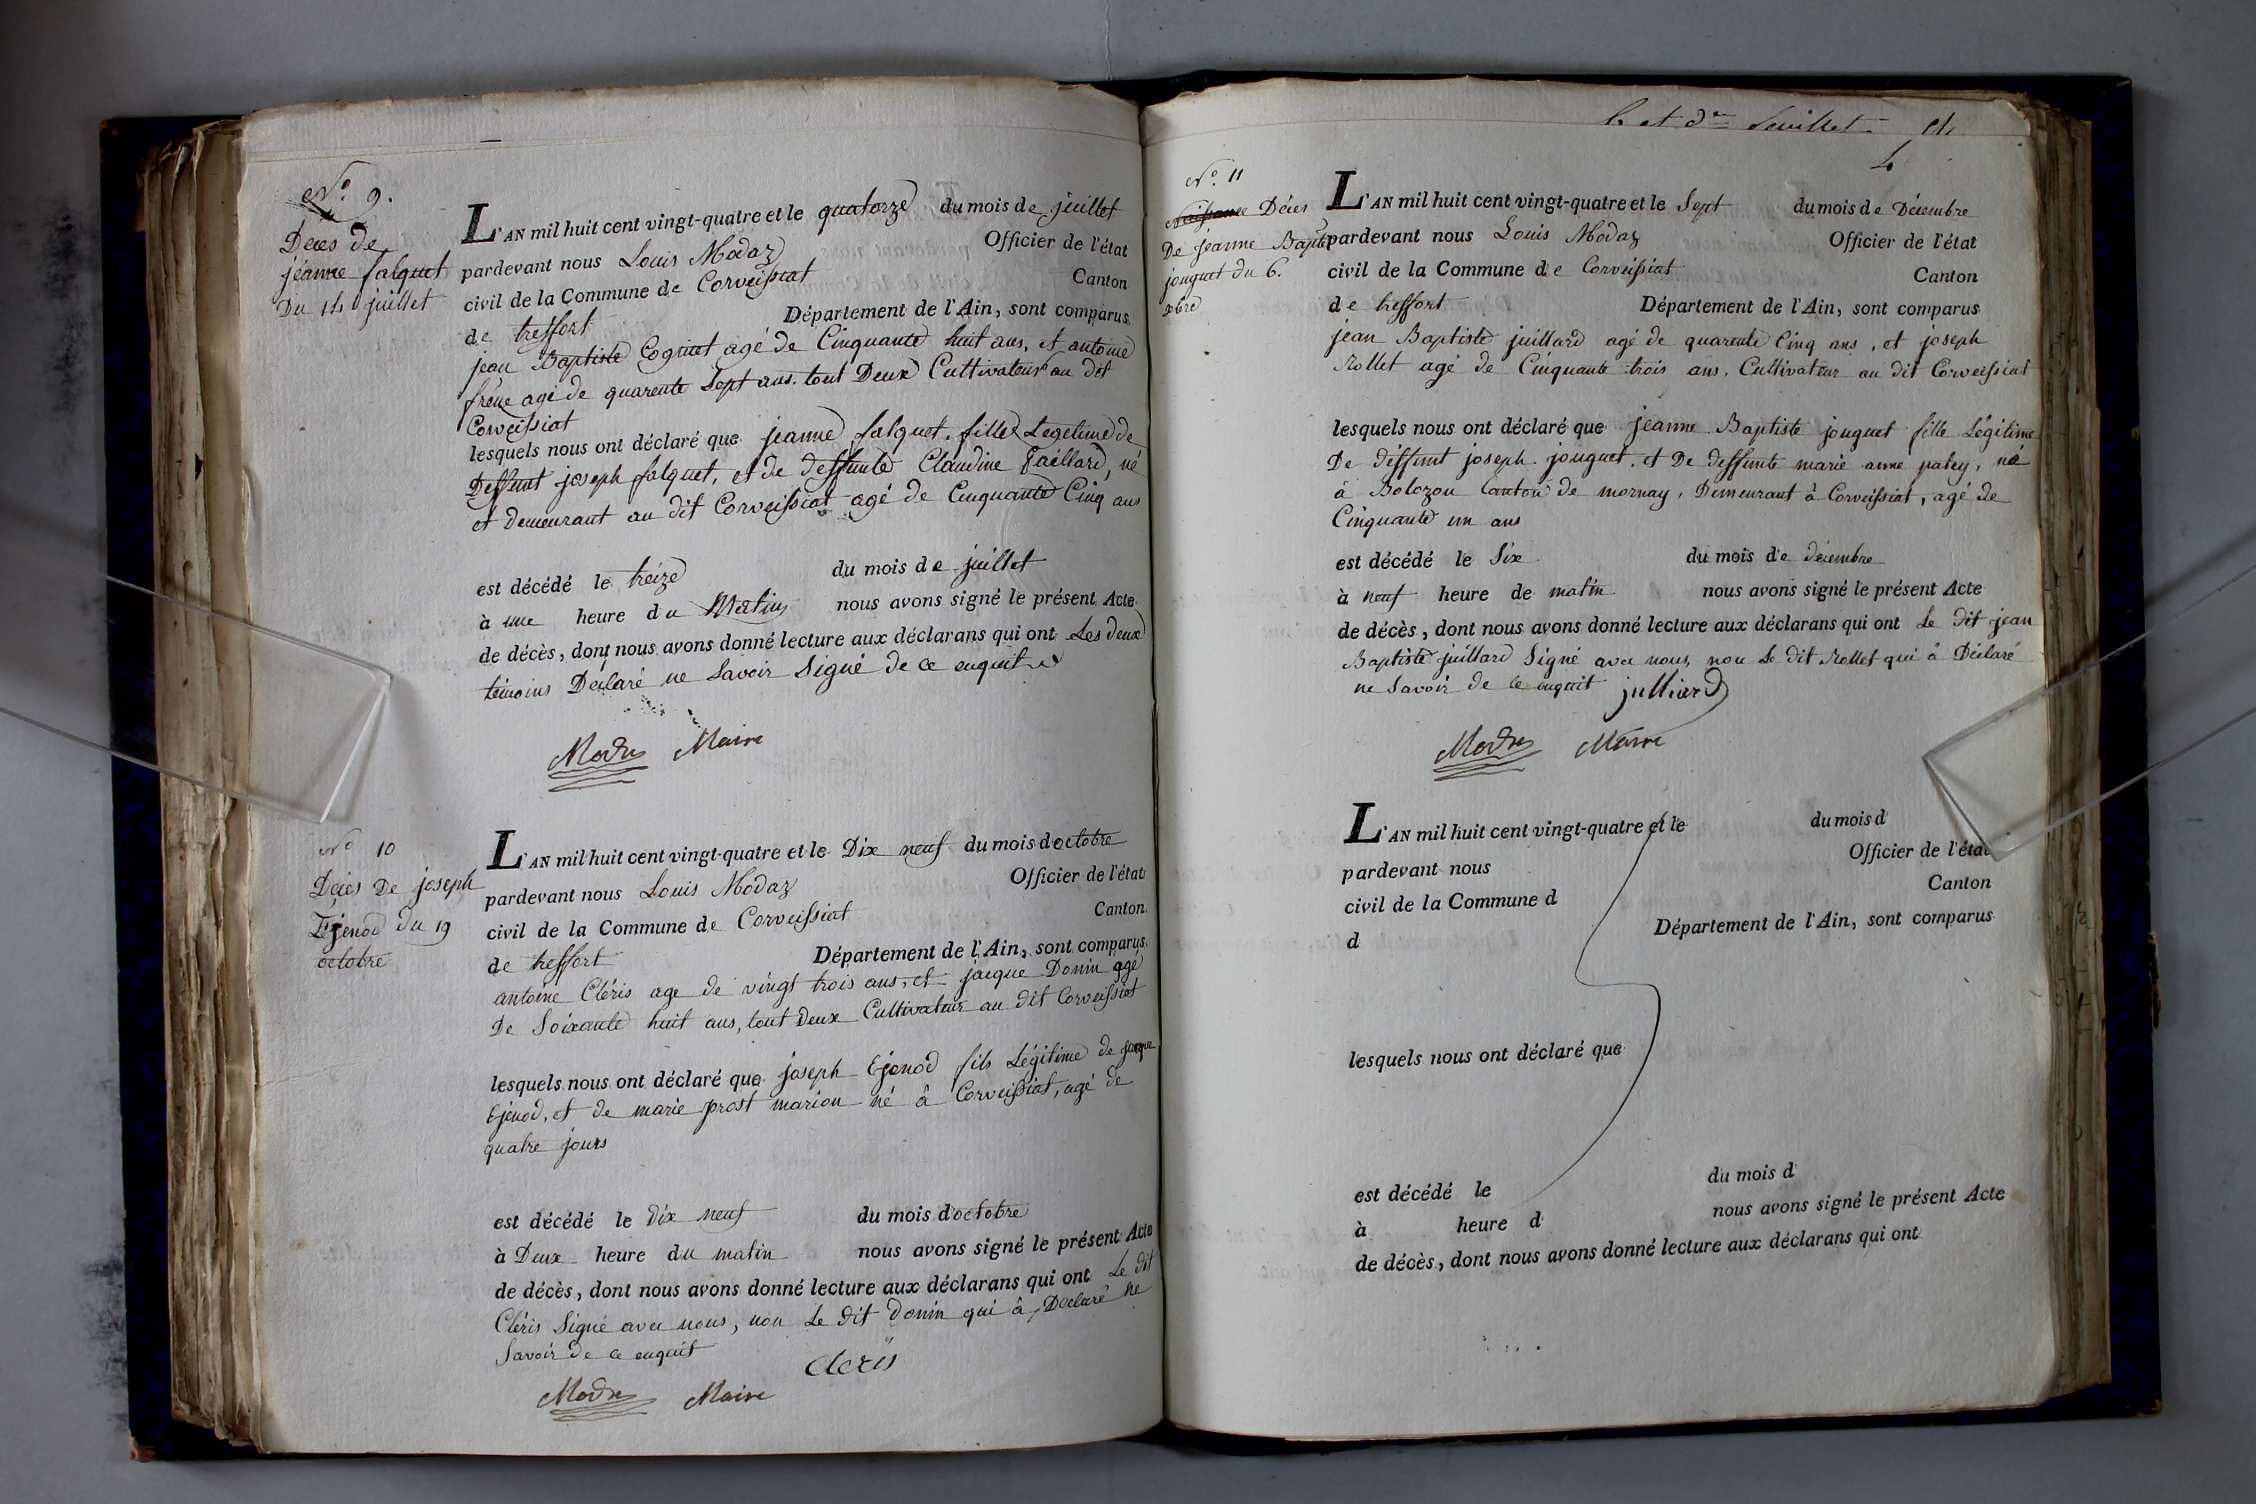 N.º 9.
Deces de
jéanne falquet
Du 14 juillet
L'AN mil huit cent vingt-quatre et le quatorze du mois de juillet
pardevant nous Louis Modaz Officier de l'état
civil de la Commune de Corveissiat Canton
de treffort Département de l'Ain, sont comparus
jean Baptiste Cognet agé de Cinquante huit ans, et antoine
frène agé de quarente Sept ans. tout Deux Cultivateur au dit
Corveissiat
lesquels nous ont déclaré que jeanne falquet. fille Legetime de
Deffunt joseph falquet, et de deffunte Claudine Gaillard, né
et demeurant au dit Corveissiat agé de Cinquante Cinq ans
est décédé le treize du mois de juillet
à une heure du Matin nous avons signé le présent Acte
de décès, dont nous avons donné lecture aux déclarans qui ont Les deux
témoins Déclaré ne Savoir Signé de ce enquit
Modaz Maire
Nº 10
Décès De joseph
Ejenod du 19
octobre
L'AN mil huit cent vingt-quatre et le Dix neuf du mois d'octobre
pardevant nous Louis Modaz Officier de l'état
civil de la Commune de Corveissiat Canton
de treffort Département de l'Ain, sont comparus
antoine Cléris age de vingt trois ans, et jacque Donin agé
De Soixante huit ans, tout Deux Cultivateur au dit Corveissiat
lesquels nous ont déclaré que joseph Ejenod fils Légitime de jacque
Ejenod, et de marie prost marion né â Corveissiat, agé de
quatre jours
est décédé le dix neuf du mois d'octobre
à Deux heure du matin nous avons signé le présent Acte
de décès, dont nous avons donné lecture aux déclarans qui ont Le dit
Cléris Signé avec nous, non Le dit Donin qui â Déclaré ne
Savoir de ce enquit
Cleris
Modaz Maire
et dr feuillet
4
Nº. 11
Naissance Décès
De jeanne Baptiste
jouquet du 6.
xbre
L'AN mil huit cent vingt-quatre et le Sept du mois de Décembre
pardevant nous Louis Modaz Officier de l'état
civil de la Commune de Corveissiat Canton
de treffort Département de l'Ain, sont comparus
jean Baptiste juillard agé de quarente Cinq ans, et joseph
Rollet agé de Cinquante trois ans, Cultivateur au dit Corveissiat
lesquels nous ont déclaré que jeanne Baptiste jouquet fille Légitime
De déffunt joseph jouquet, et De deffunte marie anne patey, né
à Bolozon Canton de mornay, Demeurant â Corveissiat, agé de
Cinquante un ans
est décédé le Six du mois de décembre
à neuf heure de matin nous avons signé le présent Acte
de décès, dont nous avons donné lecture aux déclarans qui ont Le dit jean
Baptiste juillard Signé avec nous, non Le dit Rollet qui â Déclaré
ne Savoir de ce enquit julliard
Modaz Maire
L'AN mil huit cent vingt-quatre et le du mois d
pardevant nous Officier de l'état
civil de la Commune d Canton
d Département de l'Ain, sont comparus
lesquels nous ont déclaré que
est décédé le du mois d
à heure d nous avons signé le présent Acte
de décès, dont nous avons donné lecture aux déclarans qui ont